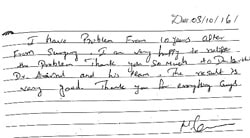 Date 03/10/16
I have Problem From 10 years after
From Surgery I am very happy to
the Problem Thank you so Much to Dr
Dr Arvind and his team. The result is
very good. Thank you for everything Guys